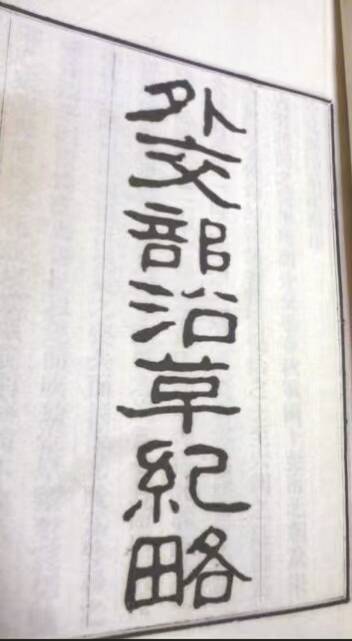 外交部沿革紀略